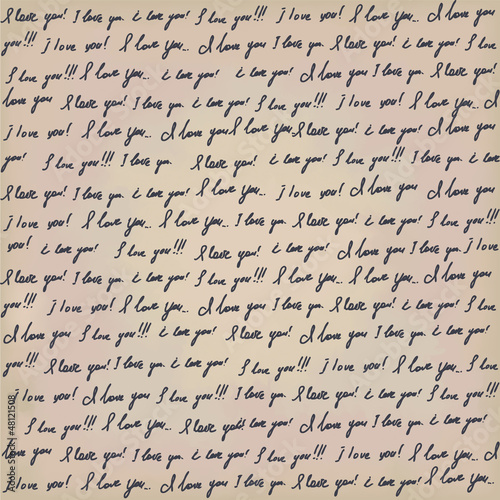 I love you! I love you. I love you! I love you!!! I love you! I love you... I love
you!!! I love you! I love you... I love you I love you. I love you! I love
I love you!!! I love you... I love you! I love you! I love you I love you. I love you...
love you I love you! I love you. I love you! I love you!!! I love you! I love you... I
I love you! I love you... I love you I love you. I love you... I love you I love you
you! I love you!!! I love you. I love you! I love you! I love you!!! I love you.
I love you! I love you. I love you! I love you... I love you! I love you I love you
I love you! I love you... I love you... I love you. I love you! I love you! I love you!!!
you! I love you! I love you!!! I love you! I love you! I love you I love you. I love
I love you! I love you. I love you! I love you!!! I love you... I love you... I love you!
you!!! I love you! I love you... I love you! I love you! I love you I love you.
I love you I love you!!! I love you! I love you! I love you I love you. I love you...
you!!! I love you! I love you. I love you! I love you!!! I love you! I love you... I love
I love you! I love you... I love you I love you!!! I love you! I love you... I love you
I love you!!! I love you... I love you! I love you! I love you I love you. I love you...
love you I love you! I love you. I love you! I love you!!! I love you! I love you...
I love you! I love you... I love you I love you. I love you! I love you! I love you...
Adobe Stock | 48121508